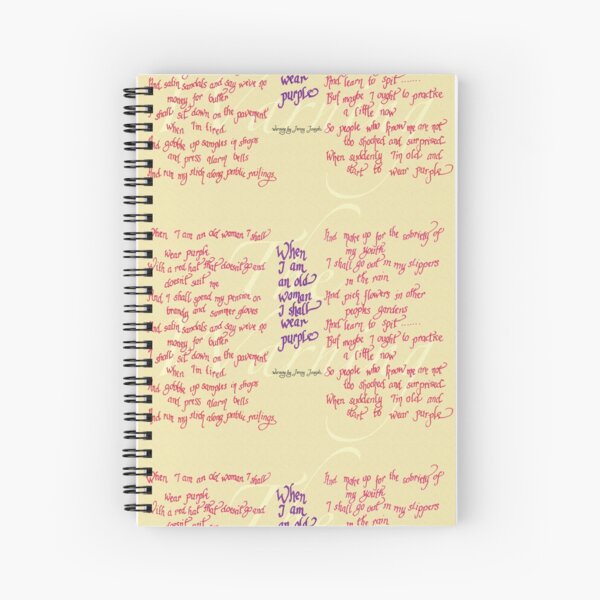 And satin sandals and say we've no
money for butter
I shall sit down on the pavement
When I'm tired
And gobble up samples in shops
and press alarm bells
And run my stick along public railings
wear
purple
Warning by Jenny Joseph
And learn to spit.......
But maybe I ought to practice
a little now
So people who know me are not
too shocked and surprised
When suddenly I'm old and
start to wear purple
When I am an old woman I shall
wear purple
With a red hat that doesn't go and
doesn't suit me
And I shall spend my pension on
brandy and summer gloves
And satin sandals and say we've no
money for butter
I shall sit down on the pavement
When I'm tired
And gobble up samples in shops
and press alarm bells
And run my stick along public railings
When
I am
an old
woman
I shall
wear
purple
Warning by Jenny Joseph
And make up for the sobriety of
my youth
I shall go out in my slippers
in the rain
And pick flowers in other
peoples gardens
And learn to spit.......
But maybe I ought to practice
a little now
So people who know me are not
too shocked and surprised
When suddenly I'm old and
start to wear purple
When I am an old woman I shall
wear purple
With a red hat that doesn't go and
doesn't suit me
When
I am
an old
And make up for the sobriety of
my youth
I shall go out in my slippers
in the rain